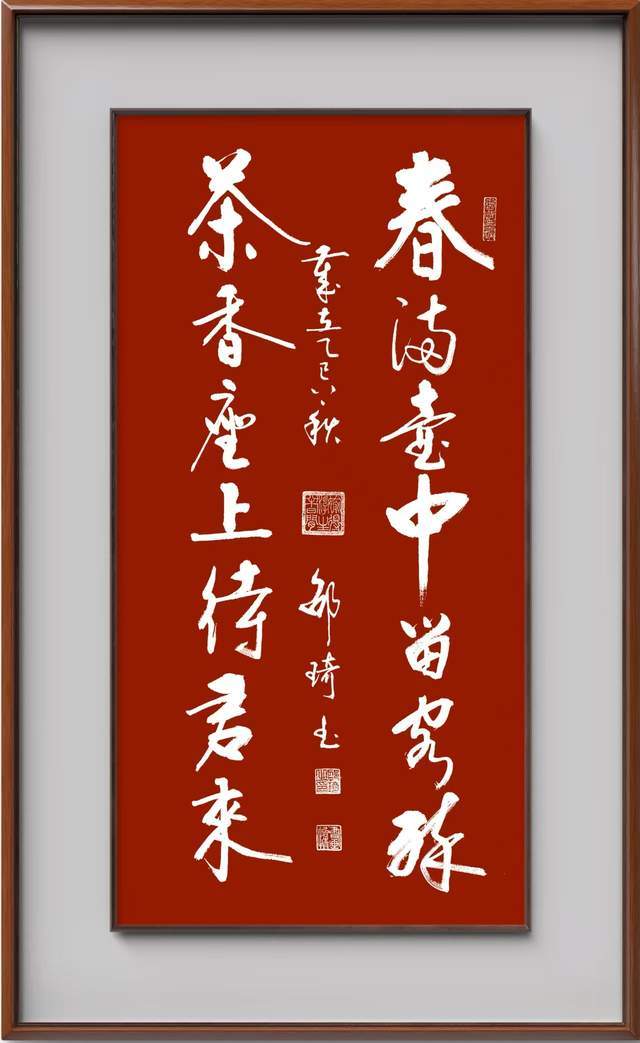 春满壶中留客醉
茶香座上待君来
岁在乙巳秋
邹琦书